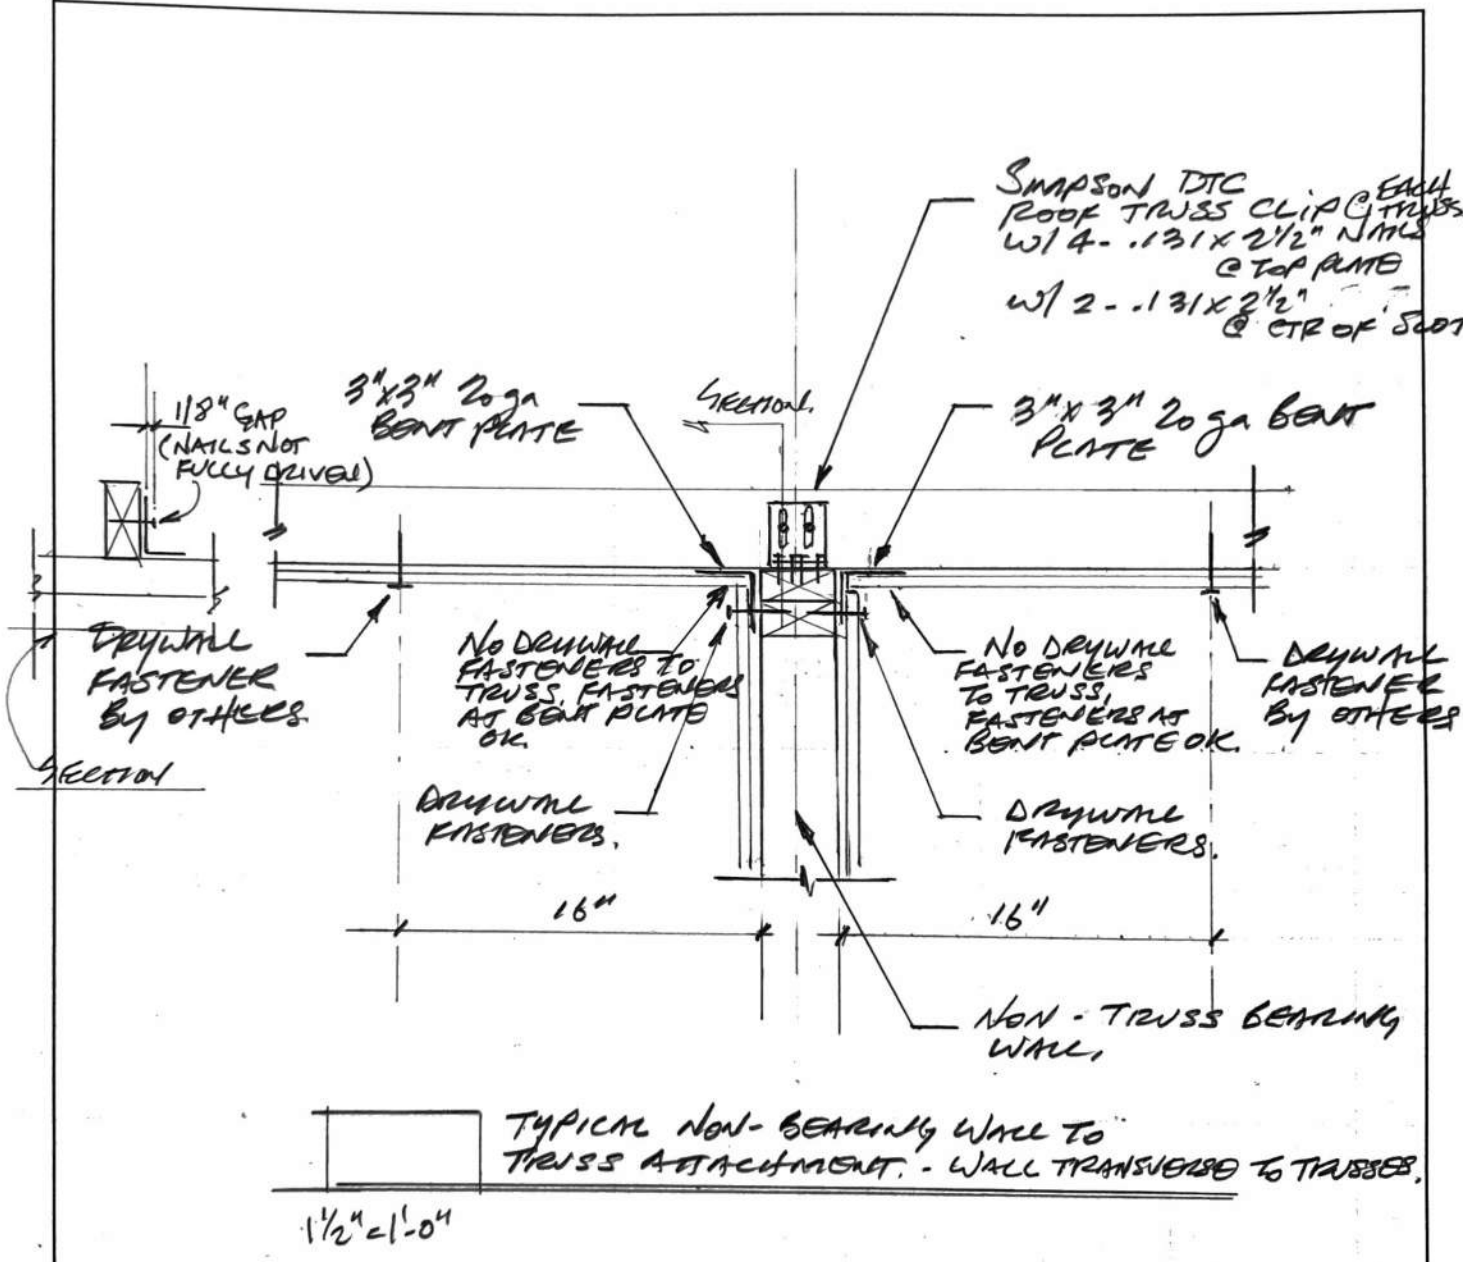 SIMPSON DTC
ROOF TRUSS CLIP @ EACH TRUSS
W/ 4- .131 x 2 1/2" NAILS
@ TOP PLATE
W/ 2- .131 x 2 1/2"
@ CTR OF SLOT
3" x 3" 20 ga
BENT PLATE
SECTION
3" x 3" 20 ga BENT
PLATE
1/8" GAP
(NAILS NOT
FULLY DRIVEN)
DRYWALL
FASTENER
BY OTHERS.
NO DRYWALL
FASTENERS TO
TRUSS, FASTENERS
AT BENT PLATE
OK.
NO DRYWALL
FASTENERS
TO TRUSS,
FASTENERS AT
BENT PLATE OK.
DRYWALL
FASTENER
BY OTHERS
SECTION
DRYWALL
FASTENERS.
DRYWALL
FASTENERS.
16"
16"
NON-TRUSS BEARING
WALL.
TYPICAL NON-BEARING WALL TO
TRUSS ATTACHMENT. - WALL TRANSVERSE TO TRUSSES.
1 1/2" = 1'-0"